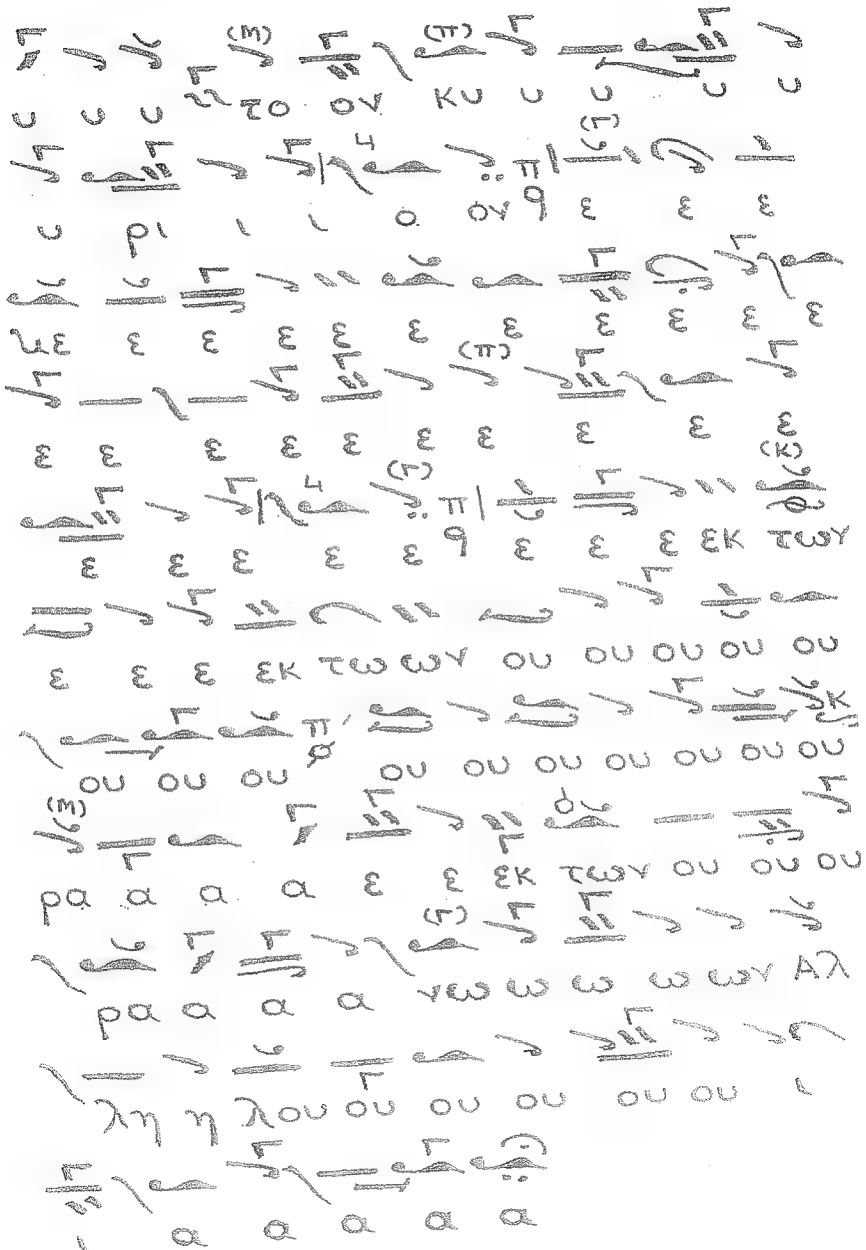 υ υ υ το ον κυ υ υ υ υ
υ ρι ι ι ο ον ε ε ε
με ε ε ε ε ε ε ε ε ε ε
ε ε ε ε ε ε ε ε ε ε
ε ε ε ε ε ε ε ε εκ των
ε ε ε εκ τω ων ου ου ου ου ου
ου ου ου ου ου ου ου ου ου ου
ρα α α α ε ε εκ των ου ου ου
ρα α α α νεω ω ω ω ων Αλ
λη η λου ου ου ου ου ου ι
ι α α α α α